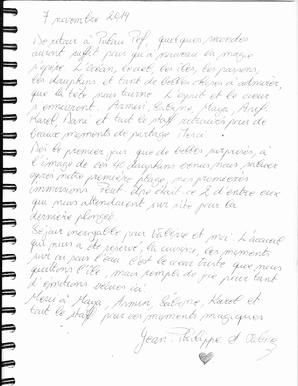 7 novembre 2014
De retour à Palau Pef, quelques secondes
auront suffit pour qu'à nouveau la magie
opère. L'océan, le soleil, les îles, les poissons,
les dauphins et tant de belles choses à admirer
que la tête nous tourne. L'esprit et le coeur
s'émouvent. Armen, Sabine, Maya, 
Karel, Dani et tout le staff retrouvés pour de
beaux moments de partage. Merci
Dès le premier jour que de belles surprises, à
l'image de ces 40 dauphins venus nous saluer
après notre première plongée, nos premières
immersions. Peut être était ce 2 d'entre eux
qui nous attendaient sur site pour la
dernière plongée.
Séjour incroyable pour Valérie et moi. L'accueil
qui nous a été réservé, la cuisine, les moments
sur ou sous l'eau. C'est le coeur triste que nous
quittons l'île, mais remplis de joie pour tant
d'émotions vécues ici.
Merci à Maya, Armen, Sabine, Karel et
tout le staff pour ces moments magiques
Jean-Philippe et Valérie